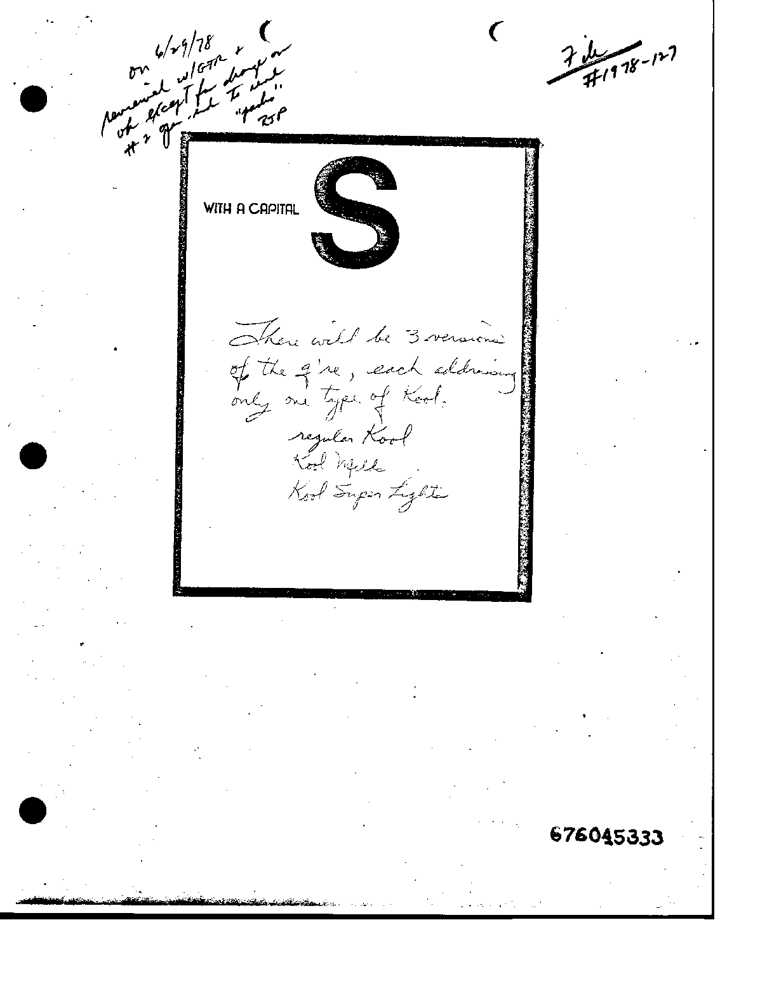 on 6/29/78
reviewed w/GTR &
ok except for change on
#2 to
"packs".
RJP
File
#1978-127
WITH A CAPITAL S
There will be 3 versions
of the q're, each addressing
only one type of Kool.
regular Kool
Kool Milds
Kool Super Lights
676045333